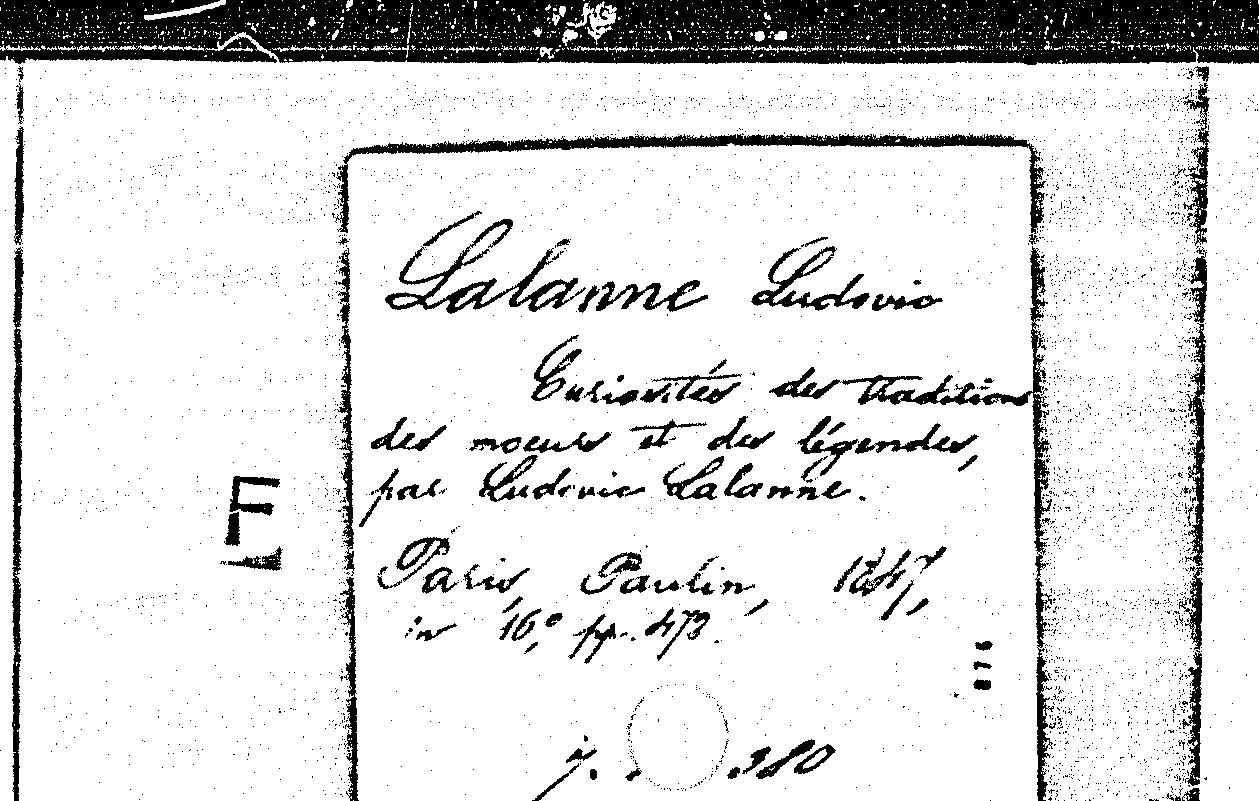 Lalanne Ludovic
Curiosités des traditions
des moeurs et des légendes,
par Ludovic Lalanne.
E
Paris, Paulin, 1847,
in 16.° pp. 473.
876
7. . .380